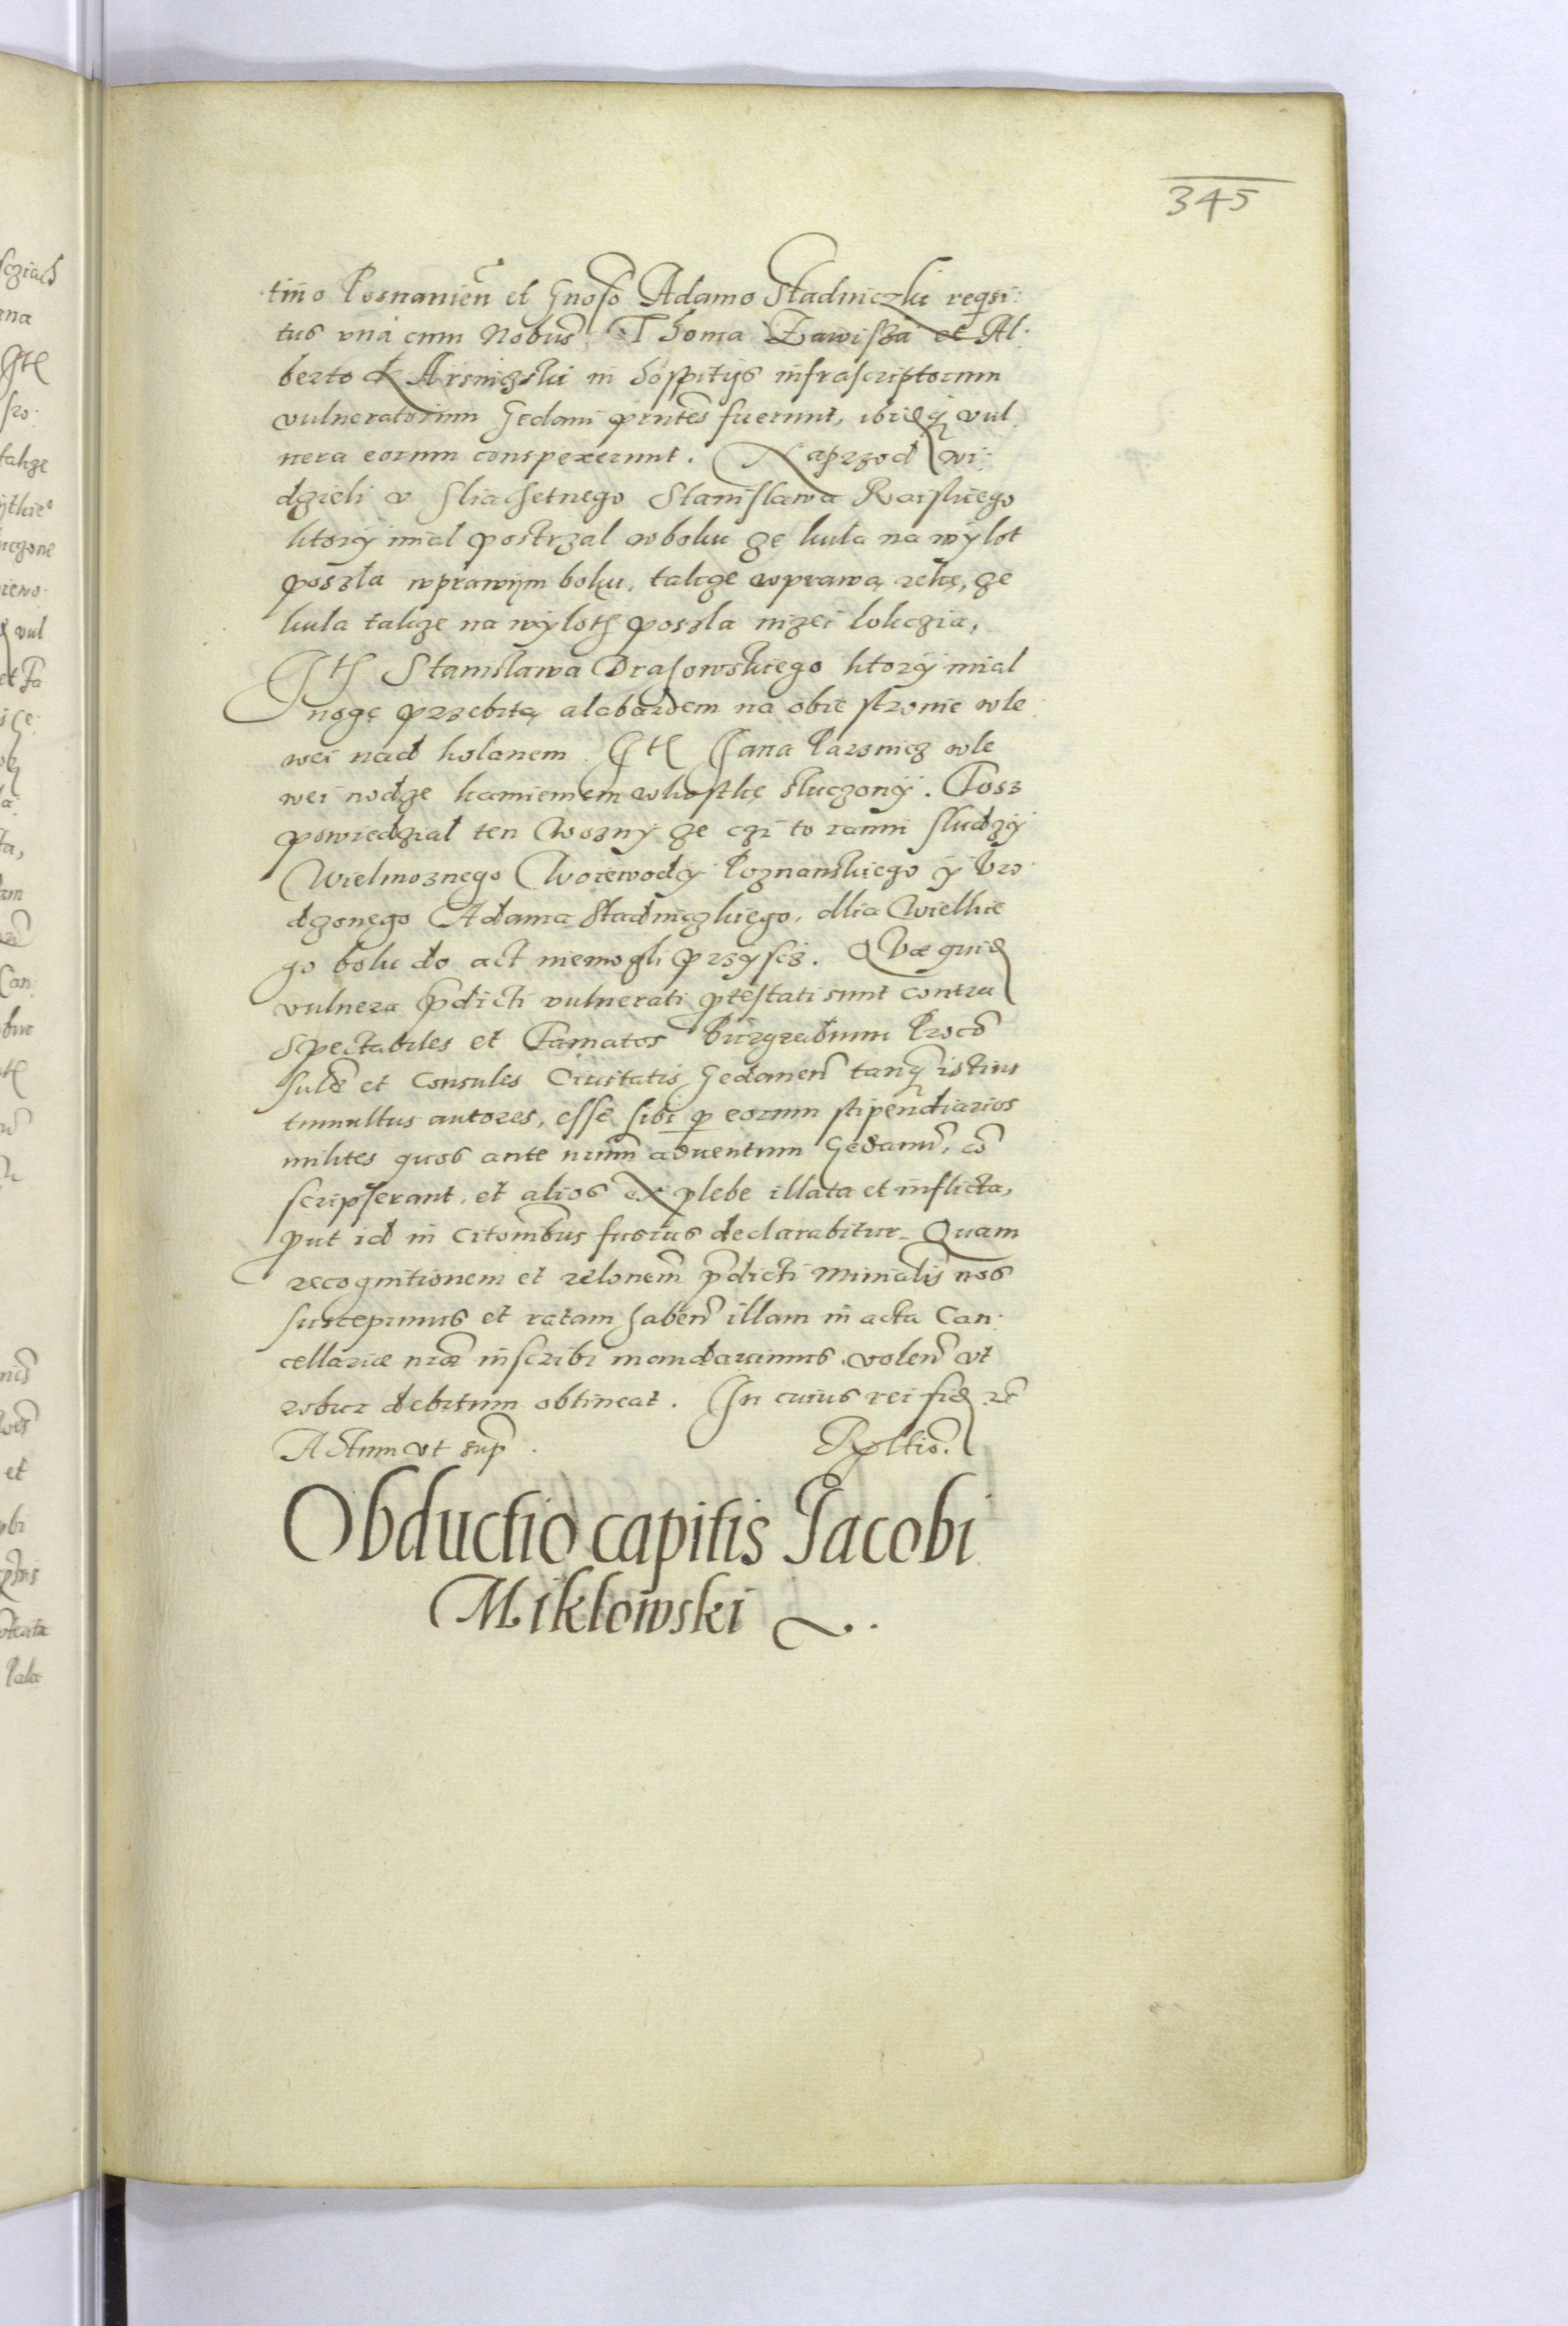 345
tino Posnanien̄ et Gnoso Adamo Stadniczki reqsi:
tus vna cum Nobus Thoma Zawisza et Al:
berto Karsniczki in hospitijs infrascriptorum
vulneratorum Gedani pntes fuerunt, ibidq vul
nera eorum conspexerunt. Naprzod wi:
dzieli v sliachetnego Stanislawa Raiskiego
ktory mial postrzal w boku ze kula na wylot
poszla w prawym boku, takze w prawą rękę, ze
kula takze na wyloth poszla nizei lokczia,
Ith Stanislawa Drasowskiego ktory mial
nogę przebitą alabardem na obie stronie w le
wei nad kolanem. Ith Jana Parsnicz w le
wei nodze kamieniem w kostkę stluczony. Tosz
powiedzial ten Wozny ze czi to ranni sludzy
Wielmoznego Woiewody Poznanskiego y Vro
dzonego Adama Stadniczkiego, dlia wielkie
go bolu do act niemogli przyscz. Quæ quid
vulnera pdicti vulnerati ptestati sunt contra
Spectabiles et Famatos Burgrabium Procō
sules et Consules Ciuitatis Gedanen̄ tanq istius
tumultus autores, esse sibi p eorum stipendiarios
milites quos ante nrum aduentum Gedanū, cō
scripserant, et alios ex plebe illata et inflicta,
put id in citombus fusius declarabitur. Quam
recognitionem et relonem pdicti Minialis nos
suscepimus et ratam haben̄ illam in acta Can:
cellariæ nræ inscribi mandauimus, volen̄ vt
robur debitum obtineat. In cuius rei fid rc̄
Actum vt sup.
Obductio capitis Jacobi
Miklowski